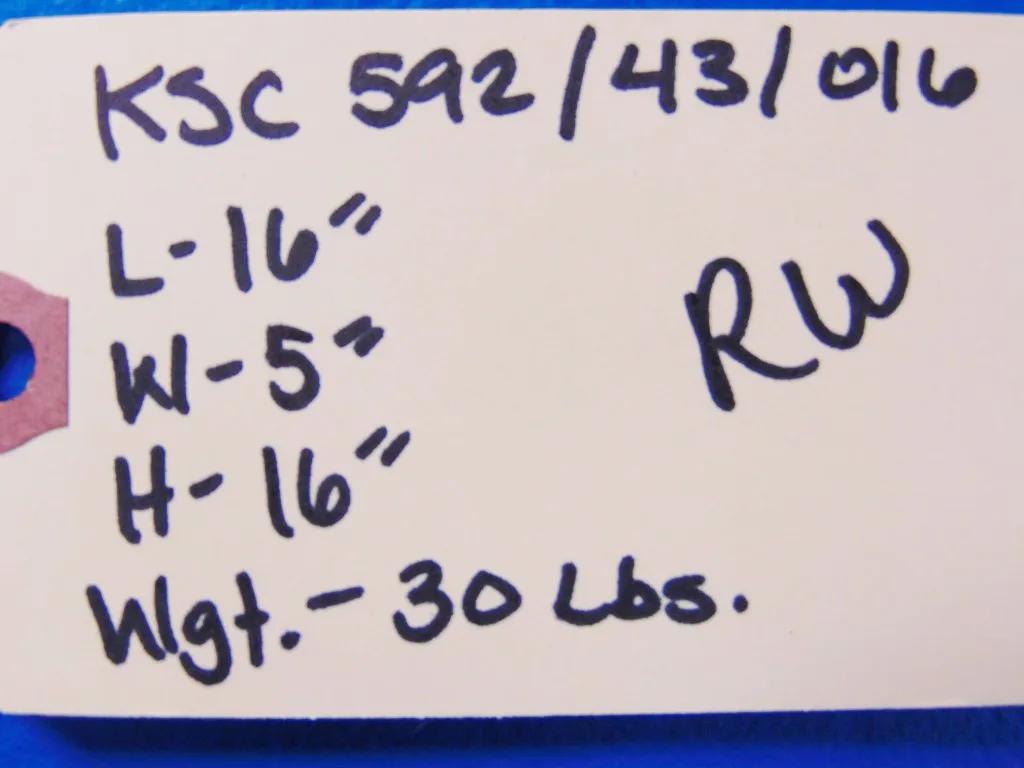 KSC 592/43/016
L-16"
W-5"
H-16"
Wgt.-30 Lbs.
RW